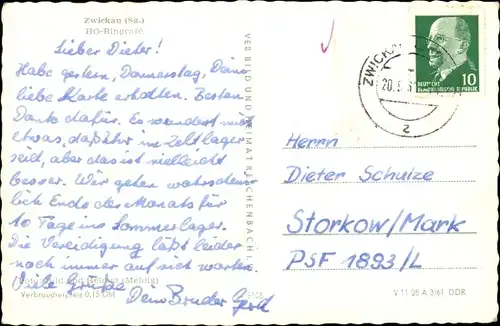 Zwickau (Sa.)
HO-Ringcafé
Lieber Dieter!
Habe gestern, Donnerstag, Deine
liebe Karte erhalten. Besten
Dank dafür. Es wundert mich
etwas, daß ihr im Zeltlager
seid, aber das ist vielleicht
besser. Wir gehen wahrschein-
lich Ende des Monats für
10 Tage ins Sommerlager.
Die Vereidigung läßt leider
noch immer auf sich warten.
Viele Grüße
Dein Bruder Gerd
Verbraucherpreis 0,15 DM
VEB BILD UND HEIMAT REICHENBACH
ZWICKAU
20.
2
DEUTSCHE
DEMOKRATISCHE REPUBLIK
10
Herrn
Dieter Schulze
Storkow/Mark
PSF 1893/L
V 11 28 A 3/61 DDR